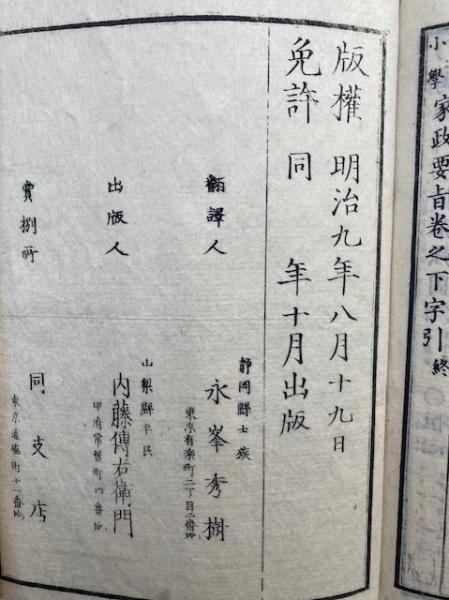 小學家政要旨卷之下字引終
版權 明治九年八月十九日
免許 同 年十月出版
翻譯人
靜岡縣士族
永峯秀樹
東京有楽町二丁目二番地
出版人
山梨縣平民
内藤傳右衛門
甲府常盤町四番地
賣捌所
同支店
東京通塩町十一番地